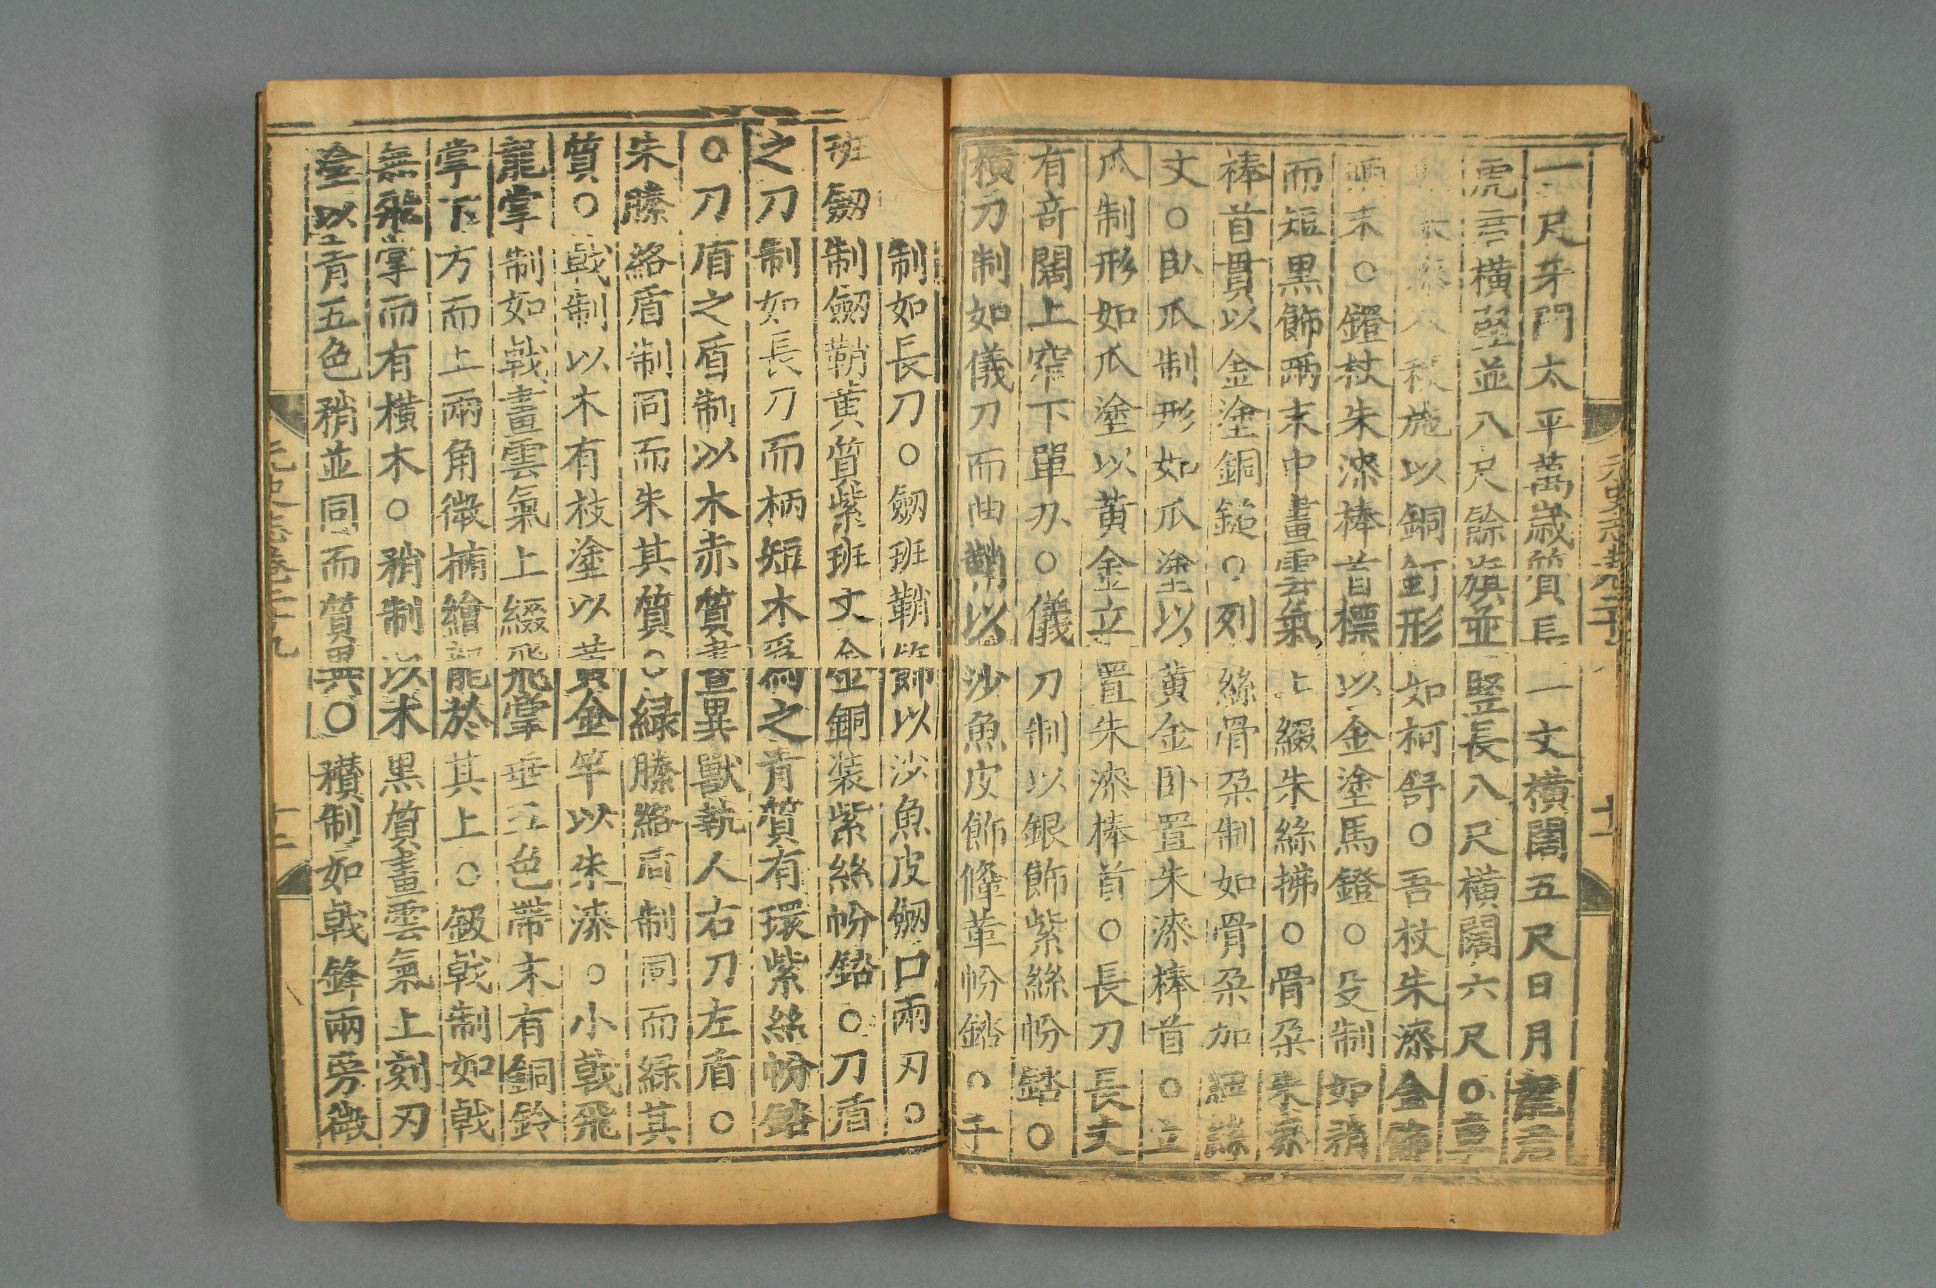 一尺牙門太平萬歲質長一丈橫闊五尺日月龍君
虎君橫竪並八尺餘旗並竪長八尺橫闊六尺○車
施以銅釘形如柯舒○吾杖朱漆金飾
兩末○鐙杖朱漆棒首標以金塗馬鐙○殳制如矟
而短黑飾兩末中畫雲氣上綴朱絲拂○骨朶朱漆
棒首貫以金塗銅鎚○列絲骨朶制如骨朶加紐絲
文○臥瓜制形如瓜塗以黃金臥置朱漆棒首○立
瓜制形如瓜塗以黃金立置朱漆棒首○長刀長丈
有奇闊上窄下單刃○儀刀制以銀飾紫絲帉錔○
橫刀制如儀刀而曲鞘以沙魚皮飾鞗革帉錔○千
制如長刀○劒班鞘飾以沙魚皮劒口兩刃○
班劒制劒鞘黃質紫班文金銅裝紫絲帉錔○刀盾
之刀制如長刀而柄短木爲之青質有環紫絲帉錔
○刀盾之盾制以木赤質畫異獸執人右刀左盾○
朱縢絡盾制同而朱其質○綠縢絡盾制同而綠其
質○戟制以木有枝塗以黃金竿以朱漆○小戟飛
龍掌制如戟畫雲氣上綴飛掌垂五色帶末有銅鈴
掌下方而上兩角微楕繪龍於其上○鈒戟制如戟
無飛掌而有橫木○矟制以木黑質畫雲氣上刻刃
塗以青五色矟並同而質異○穳制如戟鋒兩旁微
元史志卷二十九
十二